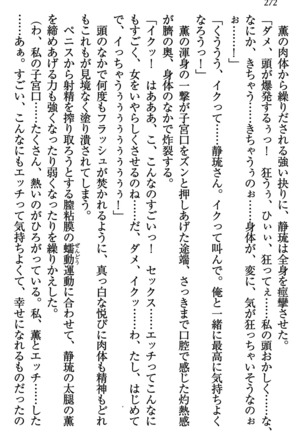 272
薫の肉体から繰りだされる強い抉りに、静琉は全身を痙攣させる。
「ダメ、頭が爆発するぅっ！ 狂うぅ、ひぃぃ、狂ってぇ……私の頭おかしく……な、
なにか、きちゃう……きちゃうぅのぉ……身体が、変に、気が狂っちゃいそうなのぉ
なろうっ！」
「くううう、イクって……静琉さん。イクって叫んで。俺と一緒に最高に気持ちよく
なろうっ！」
薫の渾身の一撃が子宮口をズンと押しあげた途端、さっきまで口腔で感じた灼熱感
が臍の奥、身体のなかで炸裂する。
「イクッ！ はあああ、こ、こんなのすごいっ！ セックス……エッチってすごい、
もすごく、女をいやらしくさせるのね……だ、ダメ、イクッ……わ、たし、はじめて
で、イっちゃうぅぅぅぅぅぅぅ！」
頭のなかで何度もフラッシュが焚かれるように、真っ白な悦びに肉体も精神もどれ
もこれもが見境なくどろどろに塗り潰されてしまう。
ペニスから射精を搾り取ろうとする膣粘膜の蠕動運動に合わせて、静琉の太腿の薫
を締めあげる力も強くなったり弱くなったりを繰りかえした。
（わ、私の子宮口……たくさん、熱いのがひろがっている。私、薫とエッチ……した
のね……あぁ。すごい、こんなにもエッチって気持ちよくて、幸せになれるものだっ